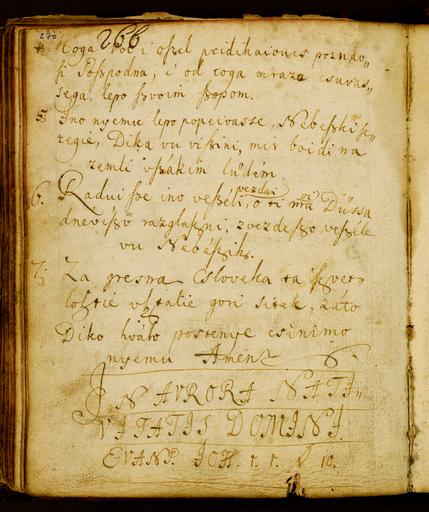 270 266
4. Toga vol i oszel pridihaiouis poznao„
si Goszpodna, i od toga mraza csuvas„
sega, lepo szvoim szopom.
5. Ino nyemu lepo popeivasse, Nebeszki se„
regie, Dika vu viszini, mir boidi na
zemli vszakim lüdem
6. Raduisze ino veszeli, vezdai o ti ma Düssa
dneviszo razglaszni, zvezdeszo veszéle
vu Nebeszih.
7. Za gresna Csloveka ta szvet„
loszt ie vsztalie gori sitek, záto
Diko hvalo postenye csinimo
nyemu Amen
IN AURORA NATI„
VITATIS DOMINI.
EVANP. IOH. 1. 1. 10.